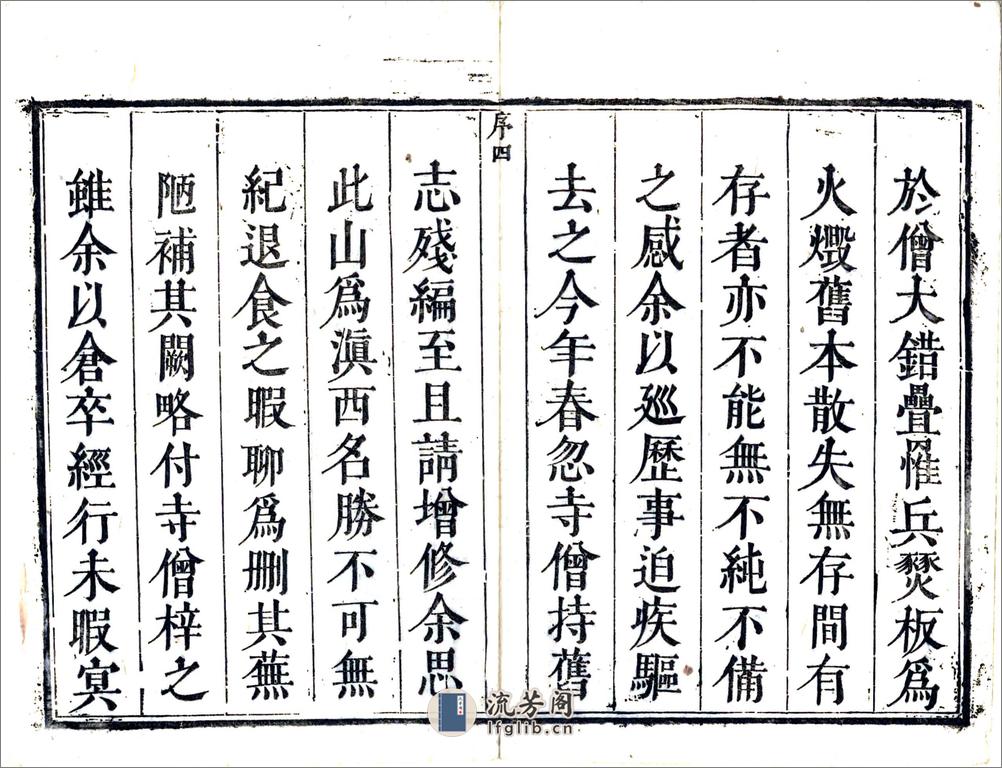 於僧大錯疊罹兵燹板爲
火燬舊本散失無存間有
存者亦不能無不純不備
之感余以廵歷事迫疾驅
去之今年春忽寺僧持舊
序四
志殘編至且請增修余思
此山爲滇西名勝不可無
紀退食之暇聊爲刪其蕪
陋補其闕略付寺僧梓之
雖余以倉卒經行未暇冥
流芳阁
lfglib.cn